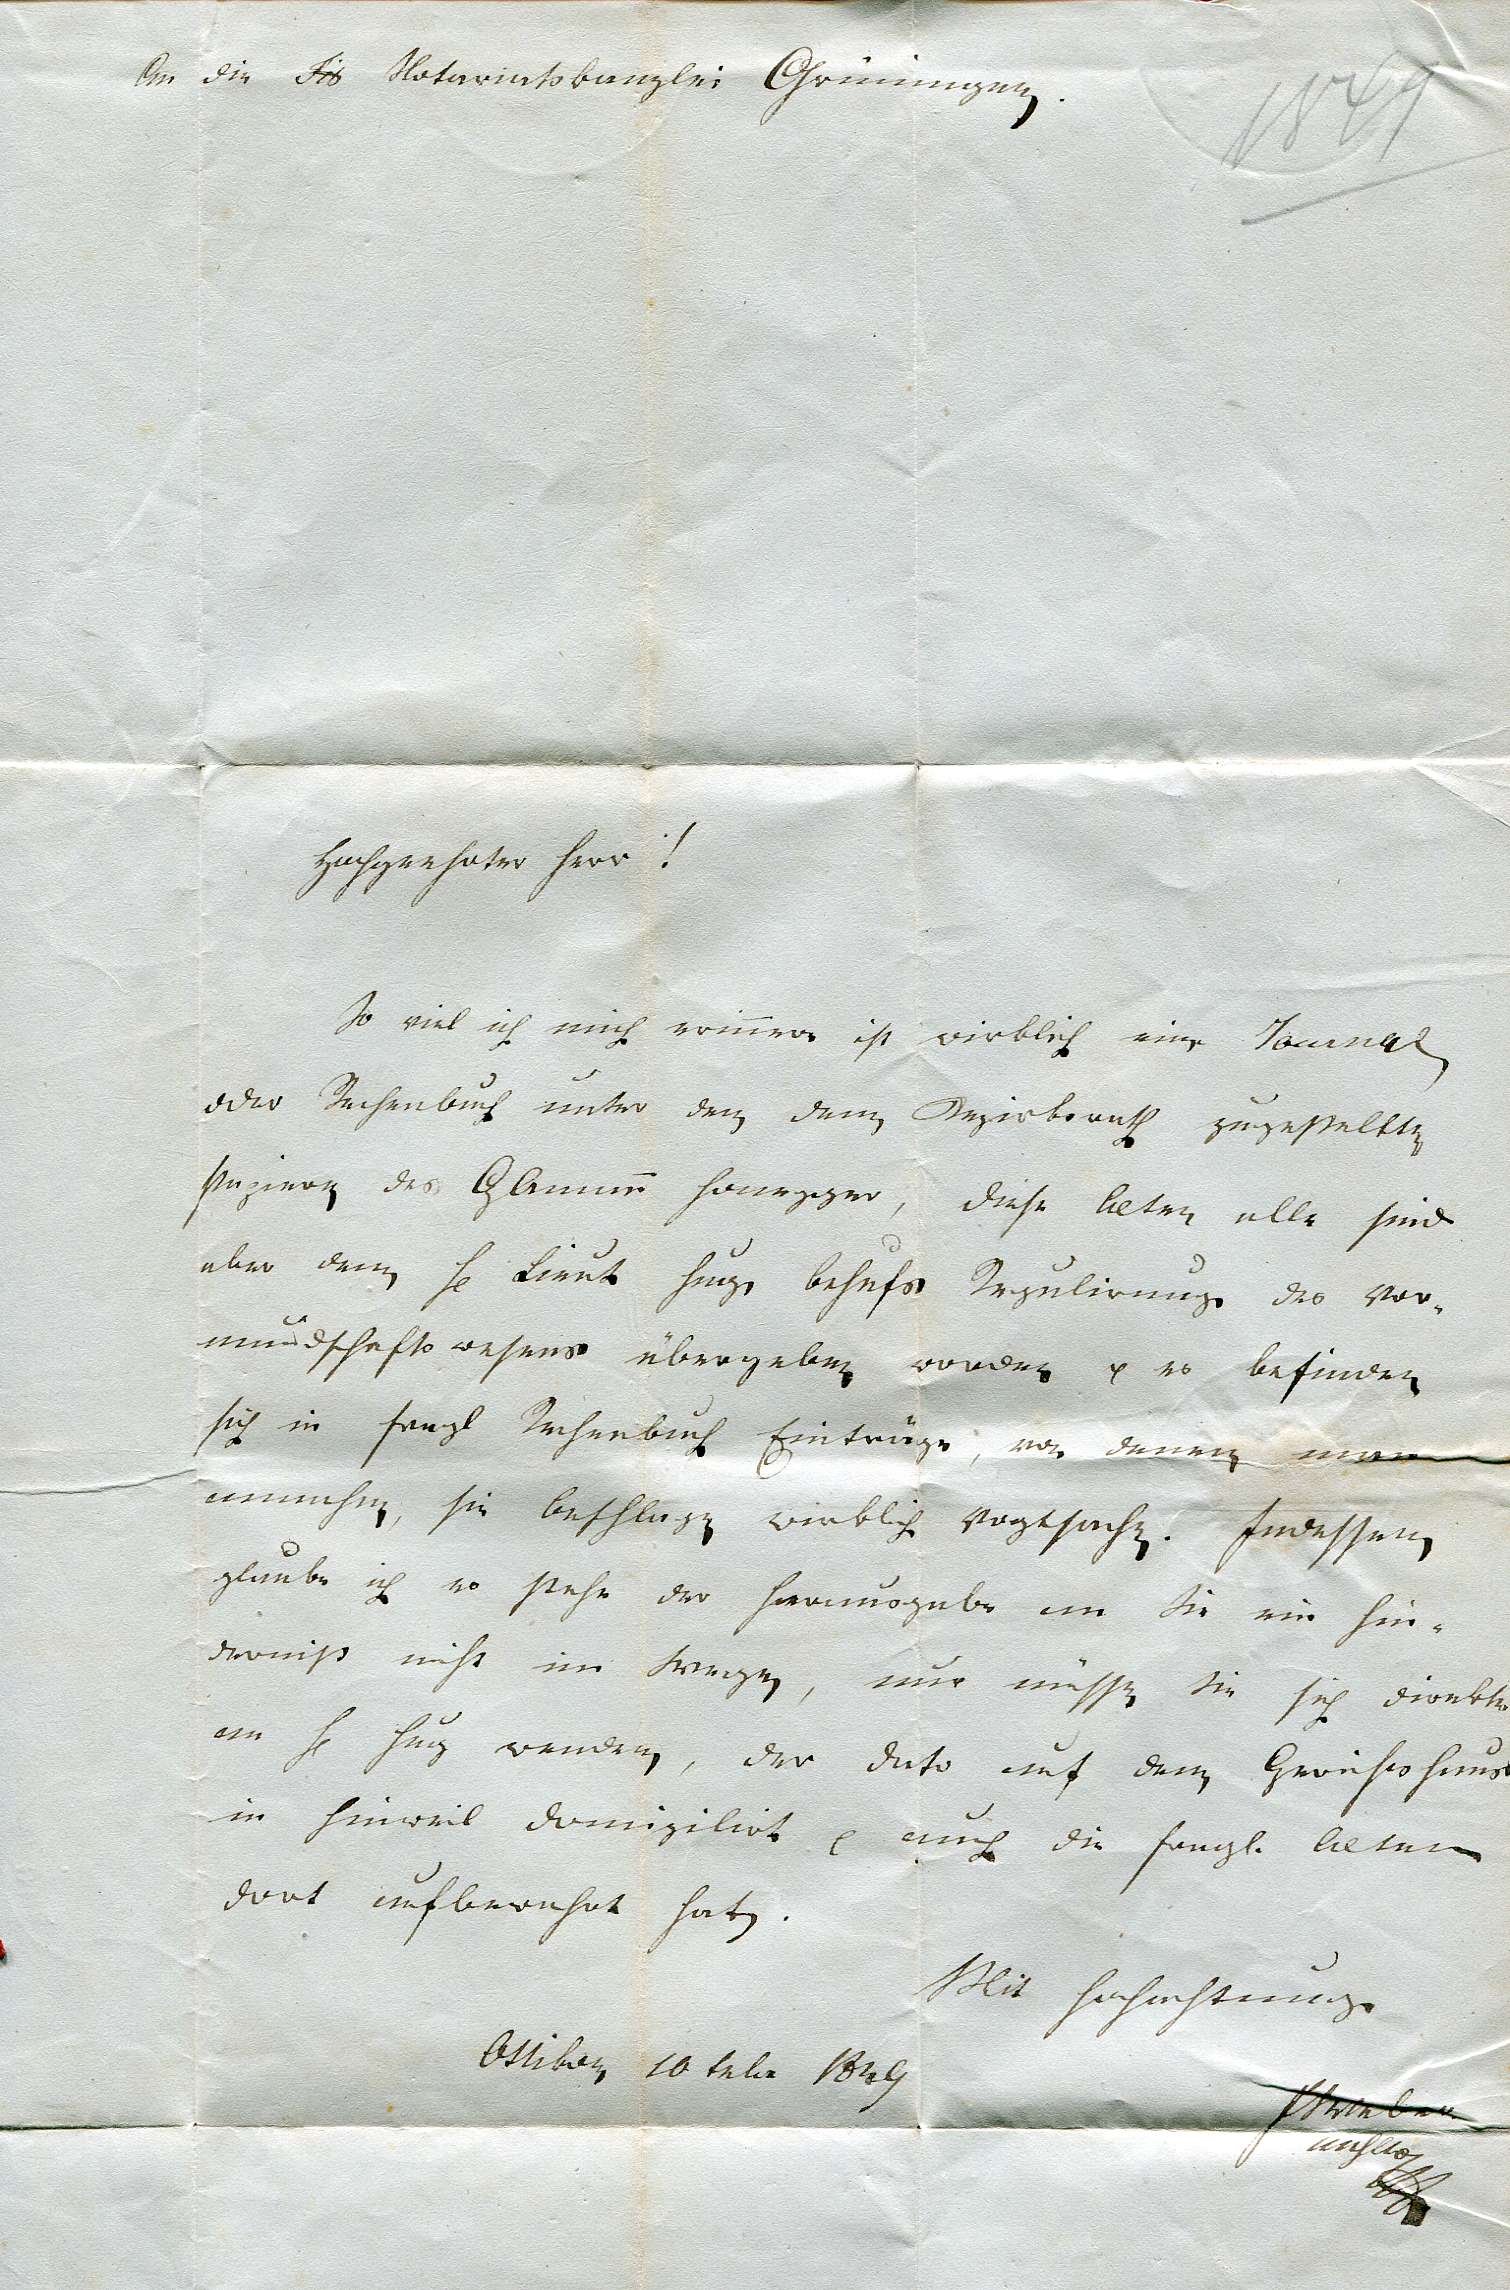 An die Notariatskanzlei Grüningen.
1849
Hochgeehrter Herr!
So viel ich mich erinnere ist wirklich eine Journal
oder Rechenbuch unter den dem Bezirksrath zugestellten
Papieren des Honegger, diese Acten alle sind
aber dem H Lieut Hug behufs Regulirung des Vor-
mundschaftswesens übergeben worden & es befinden
sich in fragl Rechenbuch Einträge, von denen man
annehme, sie beschlagen wirklich Vogtsachen. Indessen
glaube ich es stehe der Herausgabe an Sie ein Hin-
derniß nicht im Wege, nur müssen Sie sich direkte
an H Hug wenden, der dato auf dem Gerichtshaus
in Hinweil domizilirt & auch die fragl. Acten
dort aufbewahrt hat.
Mit Hochachtung
Ottikon 10 1849